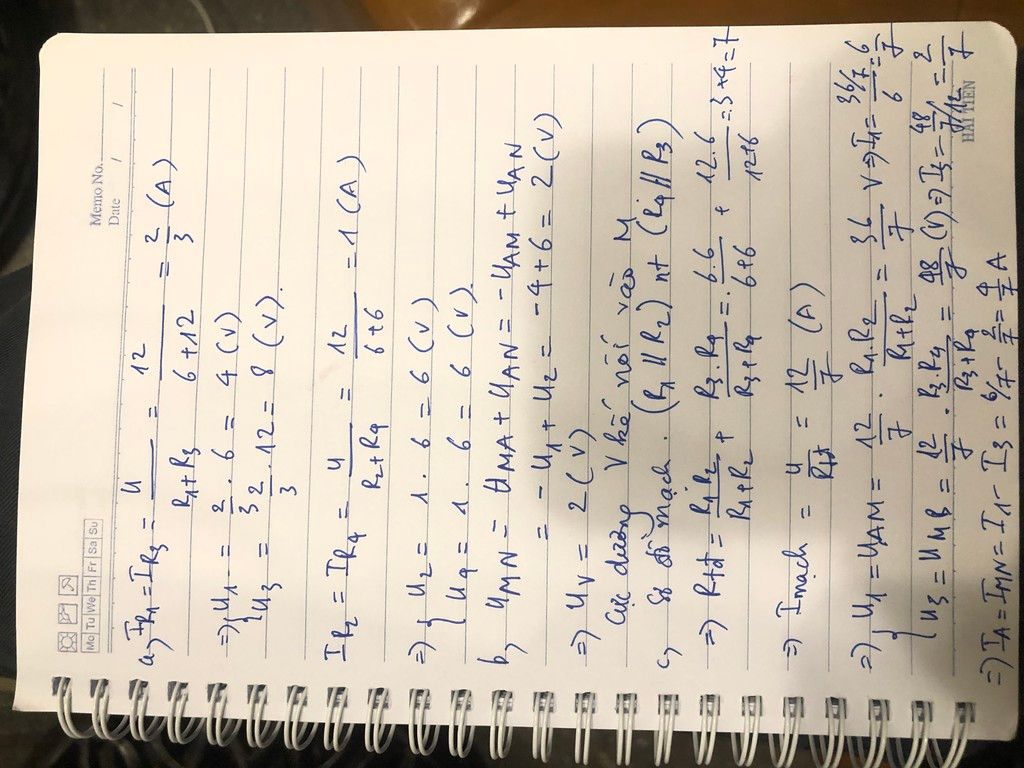 Memo No.
Mo Tu We Th Fr Sa Su
Date / /
a, IR1 = IR3 = U / (R1+R3) = 12 / (6+12) = 2/3 (A)
=> { U1 = 2/3 . 6 = 4 (V)
{ U3 = 2/3 . 12 = 8 (V).
IR2 = IR4 = U / (R2+R4) = 12 / (6+6) = 1 (A)
=> { U2 = 1 . 6 = 6 (V)
{ U4 = 1 . 6 = 6 (V).
b, UMN = UMA + UAN = -UAM + UAN
= -U1 + U2 = -4 + 6 = 2 (V)
=> UV = 2 (V)
Cực dương V kế nối vào M
c, Sơ đồ mạch. (R1 // R2) nt (R4 // R3)
=> Rtđ = R1.R2 / (R1+R2) + R3.R4 / (R3+R4) = 6.6 / (6+6) + 12.6 / (12+6) = 3+4=7
=> Imạch = U / Rtđ = 12/7 (A)
=> { U1 = UAM = 12/7 . R1.R2 / (R1+R2) = 36/7 V => I1 = 36/7 / 6 = 6/7
{ U3 = UMB = 12/7 . R3.R4 / (R3+R4) = 48/7 (V) => I3 = 48/7 / 12 = 2/7
=> IA = IMN = I1 - I3 = 6/7 - 2/7 = 4/7 A
HẢI TIẾN